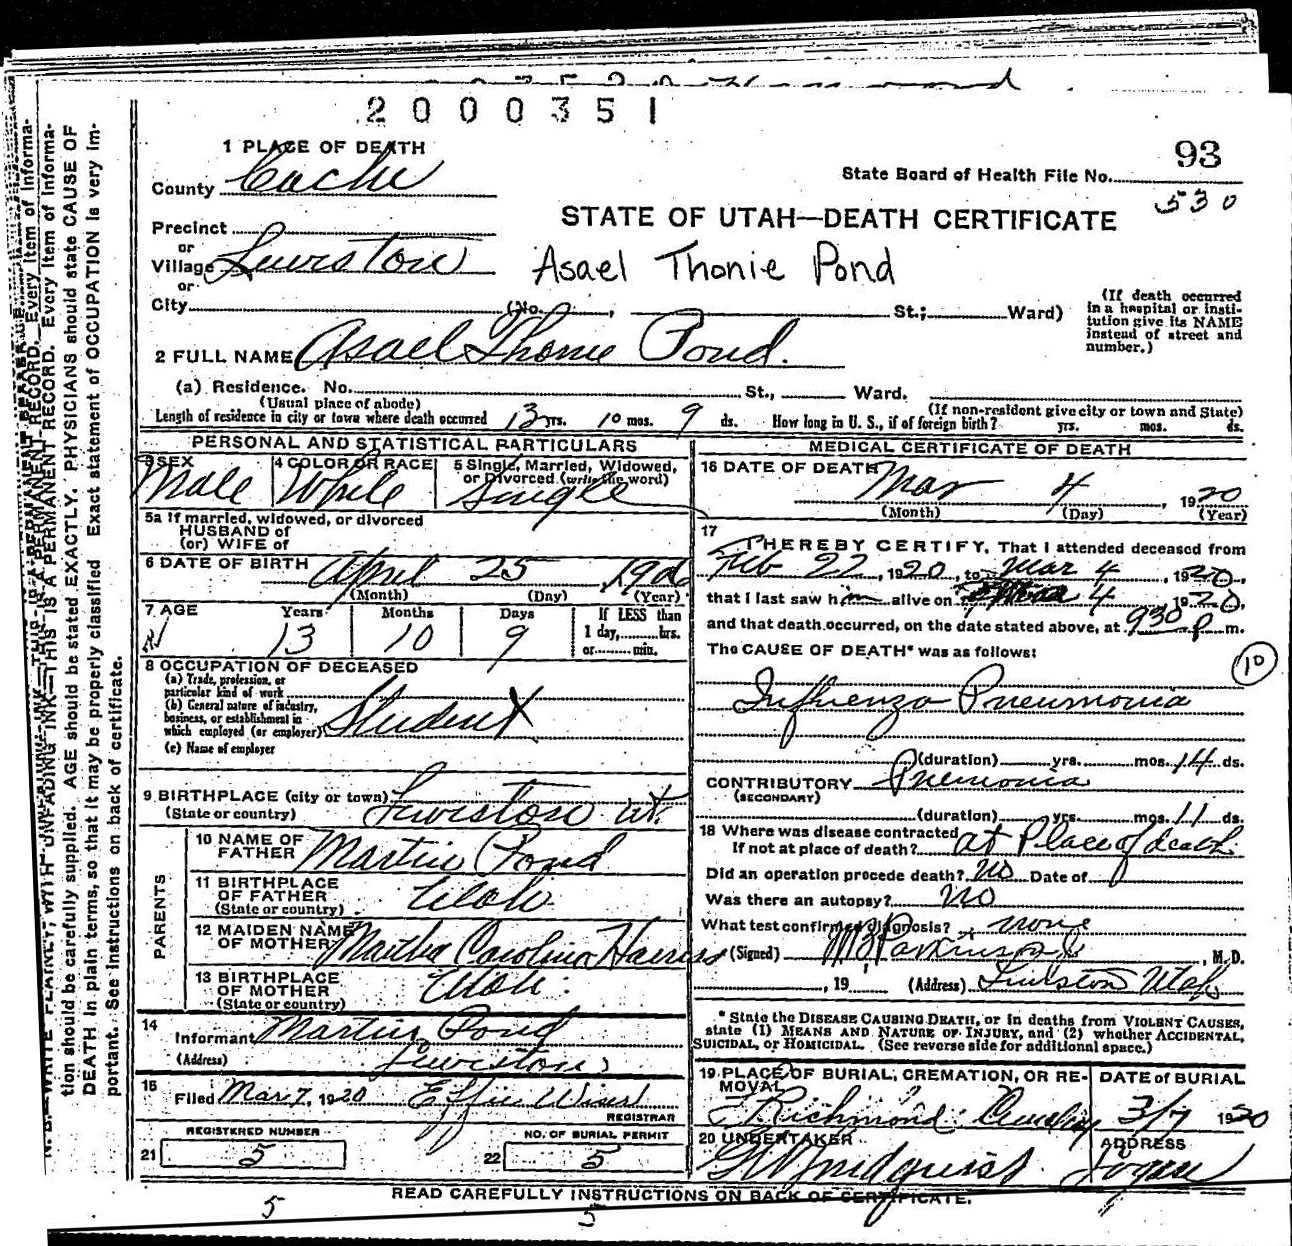 2000351
1 PLACE OF DEATH
93
County Cache
State Board of Health File No.
530
STATE OF UTAH—DEATH CERTIFICATE
Precinct
or
Village Lewiston
Asael Thonie Pond
or
City (No. , St.; Ward)
(If death occurred in a hospital or insti-
tution give its NAME
instead of street and
number.)
2 FULL NAME Asael Thonie Pond.
(a) Residence. No. St., Ward.
(Usual place of abode)
(If non-resident give city or town and State)
Length of residence in city or town where death occurred 13 yrs. 10 mos. 9 ds. How long in U. S., if of foreign birth? yrs. mos. ds.
PERSONAL AND STATISTICAL PARTICULARS
3 SEX Male
4 COLOR OR RACE White
5 Single, Married, Widowed,
or Divorced (write the word)
Single
5a If married, widowed, or divorced
HUSBAND of
(or) WIFE of
6 DATE OF BIRTH April 25 1906
(Month) (Day) (Year)
7 AGE Years Months Days If LESS than
13 10 9 1 day, hrs.
or min.
8 OCCUPATION OF DECEASED
(a) Trade, profession, or
particular kind of work
(b) General nature of industry,
business, or establishment in
which employed (or employer) Student
(c) Name of employer
9 BIRTHPLACE (city or town) Lewiston Ut.
(State or country)
PARENTS
10 NAME OF
FATHER Martin Pond
11 BIRTHPLACE
OF FATHER Utah
(State or country)
12 MAIDEN NAME
OF MOTHER Martha Carolina Harriss
13 BIRTHPLACE
OF MOTHER Utah.
(State or country)
14
Informant Martin Pond
(Address) Lewiston
15
Filed Mar 7, 1920 Effie Wiser
REGISTRAR
REGISTERED NUMBER
21 5
NO. OF BURIAL PERMIT
22 5
MEDICAL CERTIFICATE OF DEATH
16 DATE OF DEATH Mar 4, 1920
(Month) (Day) (Year)
17
I HEREBY CERTIFY, That I attended deceased from
Feb 22, 1920, to Mar 4, 1920,
that I last saw him alive on Mar 4 1920,
and that death occurred, on the date stated above, at 930 P m.
The CAUSE OF DEATH* was as follows:
10
Influenza Pneumonia
(duration) yrs. mos. 14 ds.
CONTRIBUTORY Pnemonia
(SECONDARY)
(duration) yrs. mos. 11 ds.
18 Where was disease contracted
If not at place of death? at Place of death
Did an operation procede death? No Date of
Was there an autopsy? No
What test confirmed diagnosis? none
(Signed) Parkinson, M.D.
, 19 (Address) Lewiston Utah
* State the DISEASE CAUSING DEATH, or in deaths from VIOLENT CAUSES,
state (1) MEANS AND NATURE OF INJURY, and (2) whether ACCIDENTAL,
SUICIDAL, or HOMICIDAL. (See reverse side for additional space.)
19 PLACE OF BURIAL, CREMATION, OR RE-
MOVAL
Richmond
DATE of BURIAL
3/7 1920
20 UNDERTAKER
Lindquist
ADDRESS
Logan
READ CAREFULLY INSTRUCTIONS ON BACK OF CERTIFICATE.
5 5
N. B.—WRITE PLAINLY, WITH UNFADING INK—THIS IS A PERMANENT RECORD. Every item of Informa-
tion should be carefully supplied. AGE should be stated EXACTLY. PHYSICIANS should state CAUSE OF
DEATH in plain terms, so that it may be properly classified Exact statement of OCCUPATION is very im-
portant. See instructions on back of certificate.